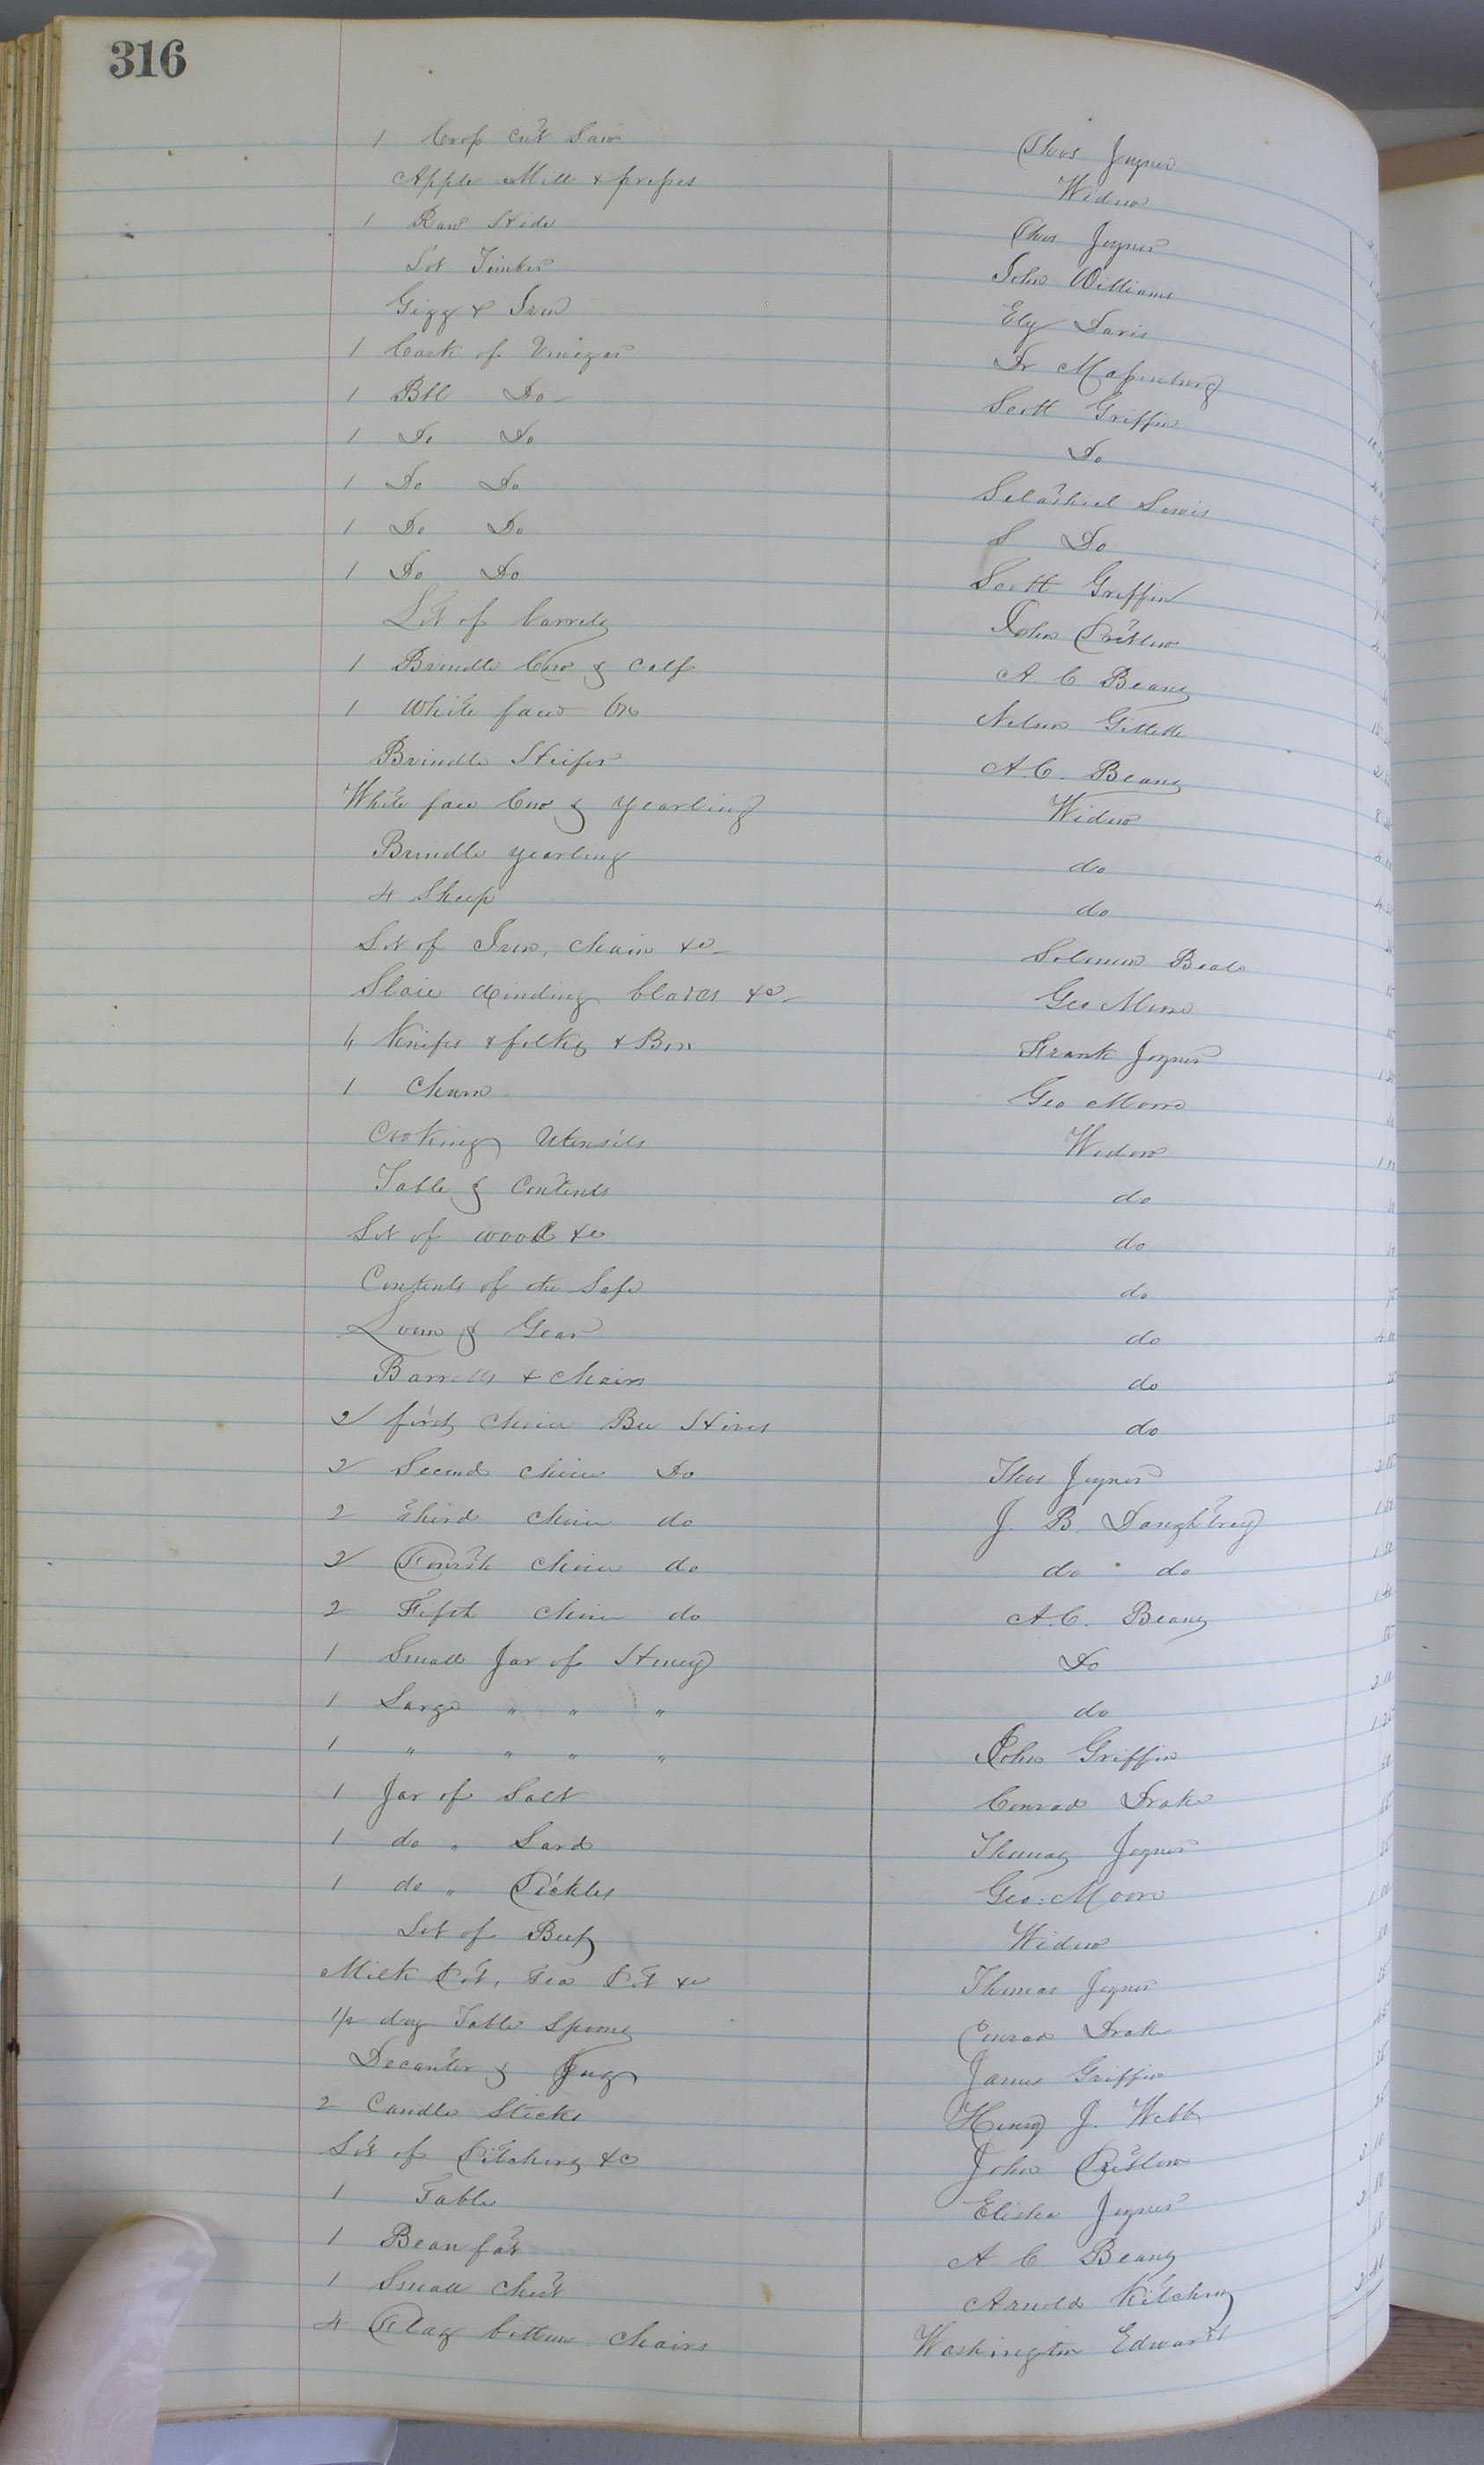 316
1 Crop cut Saw Thos Joyner
Apple Mill & presses Widow
1 Raw Hide Thos Joyner
Lot Timber John Williams
Gigg & Iron Ely Davis
1 Cask of Vinegar Dr Massenburg
1 Bbl Do Scott Griffin
1 Do Do Do
1 Do Do Salathiel Lewis
1 Do Do S Do
1 Do Do Scott Griffin
Lot of barrels John Pretlow
1 Brindle Cow & calf A. C. Beang
1 White face Ox Nelson Gillette
Brindle Heifer A. C. Beang
White face Cow & yearling Widow
Brindle yearling do
4 Sheep do
Lot of Iron, chain &c Solomon Beale
Slaie winding blades &c Geo Moore
4 Knifes & folks & Box Frank Joyner
1 Churn Geo Moore
Cooking Utensils Widow
Table & Contents do
Lot of wool &c do
Contents of the Safe do
Loom & Gear do
Barrells & chairs do
2 first choice Bee Hives do
2 Second choice Do Thos Joyner
2 third choice do J. B. Daughtrey
2 Fourth choice do do do
2 Fifth choice do A. C. Beang
1 Small Jar of Honey Do
1 Large " " " do
1 " " " " John Griffin
1 Jar of Salt Conrad Drake
1 do " Lard Thomas Joyner
1 do " Pickles Geo: Moore
Lot of Beef Widow
Milk Pot, Tea Pot &c Thomas Joyner
1/2 doz Table Spoons Conrad Drake
Decanter & Jug James Griffin
2 Candle Sticks Henry J. Webb
Lot of Pitchers &c John Pretlow
1 Table Elisha Joyner
1 Beaufat A C Beang
1 Small Chest Arnold Kitching
4 Flag bottom Chairs Washington Edwards